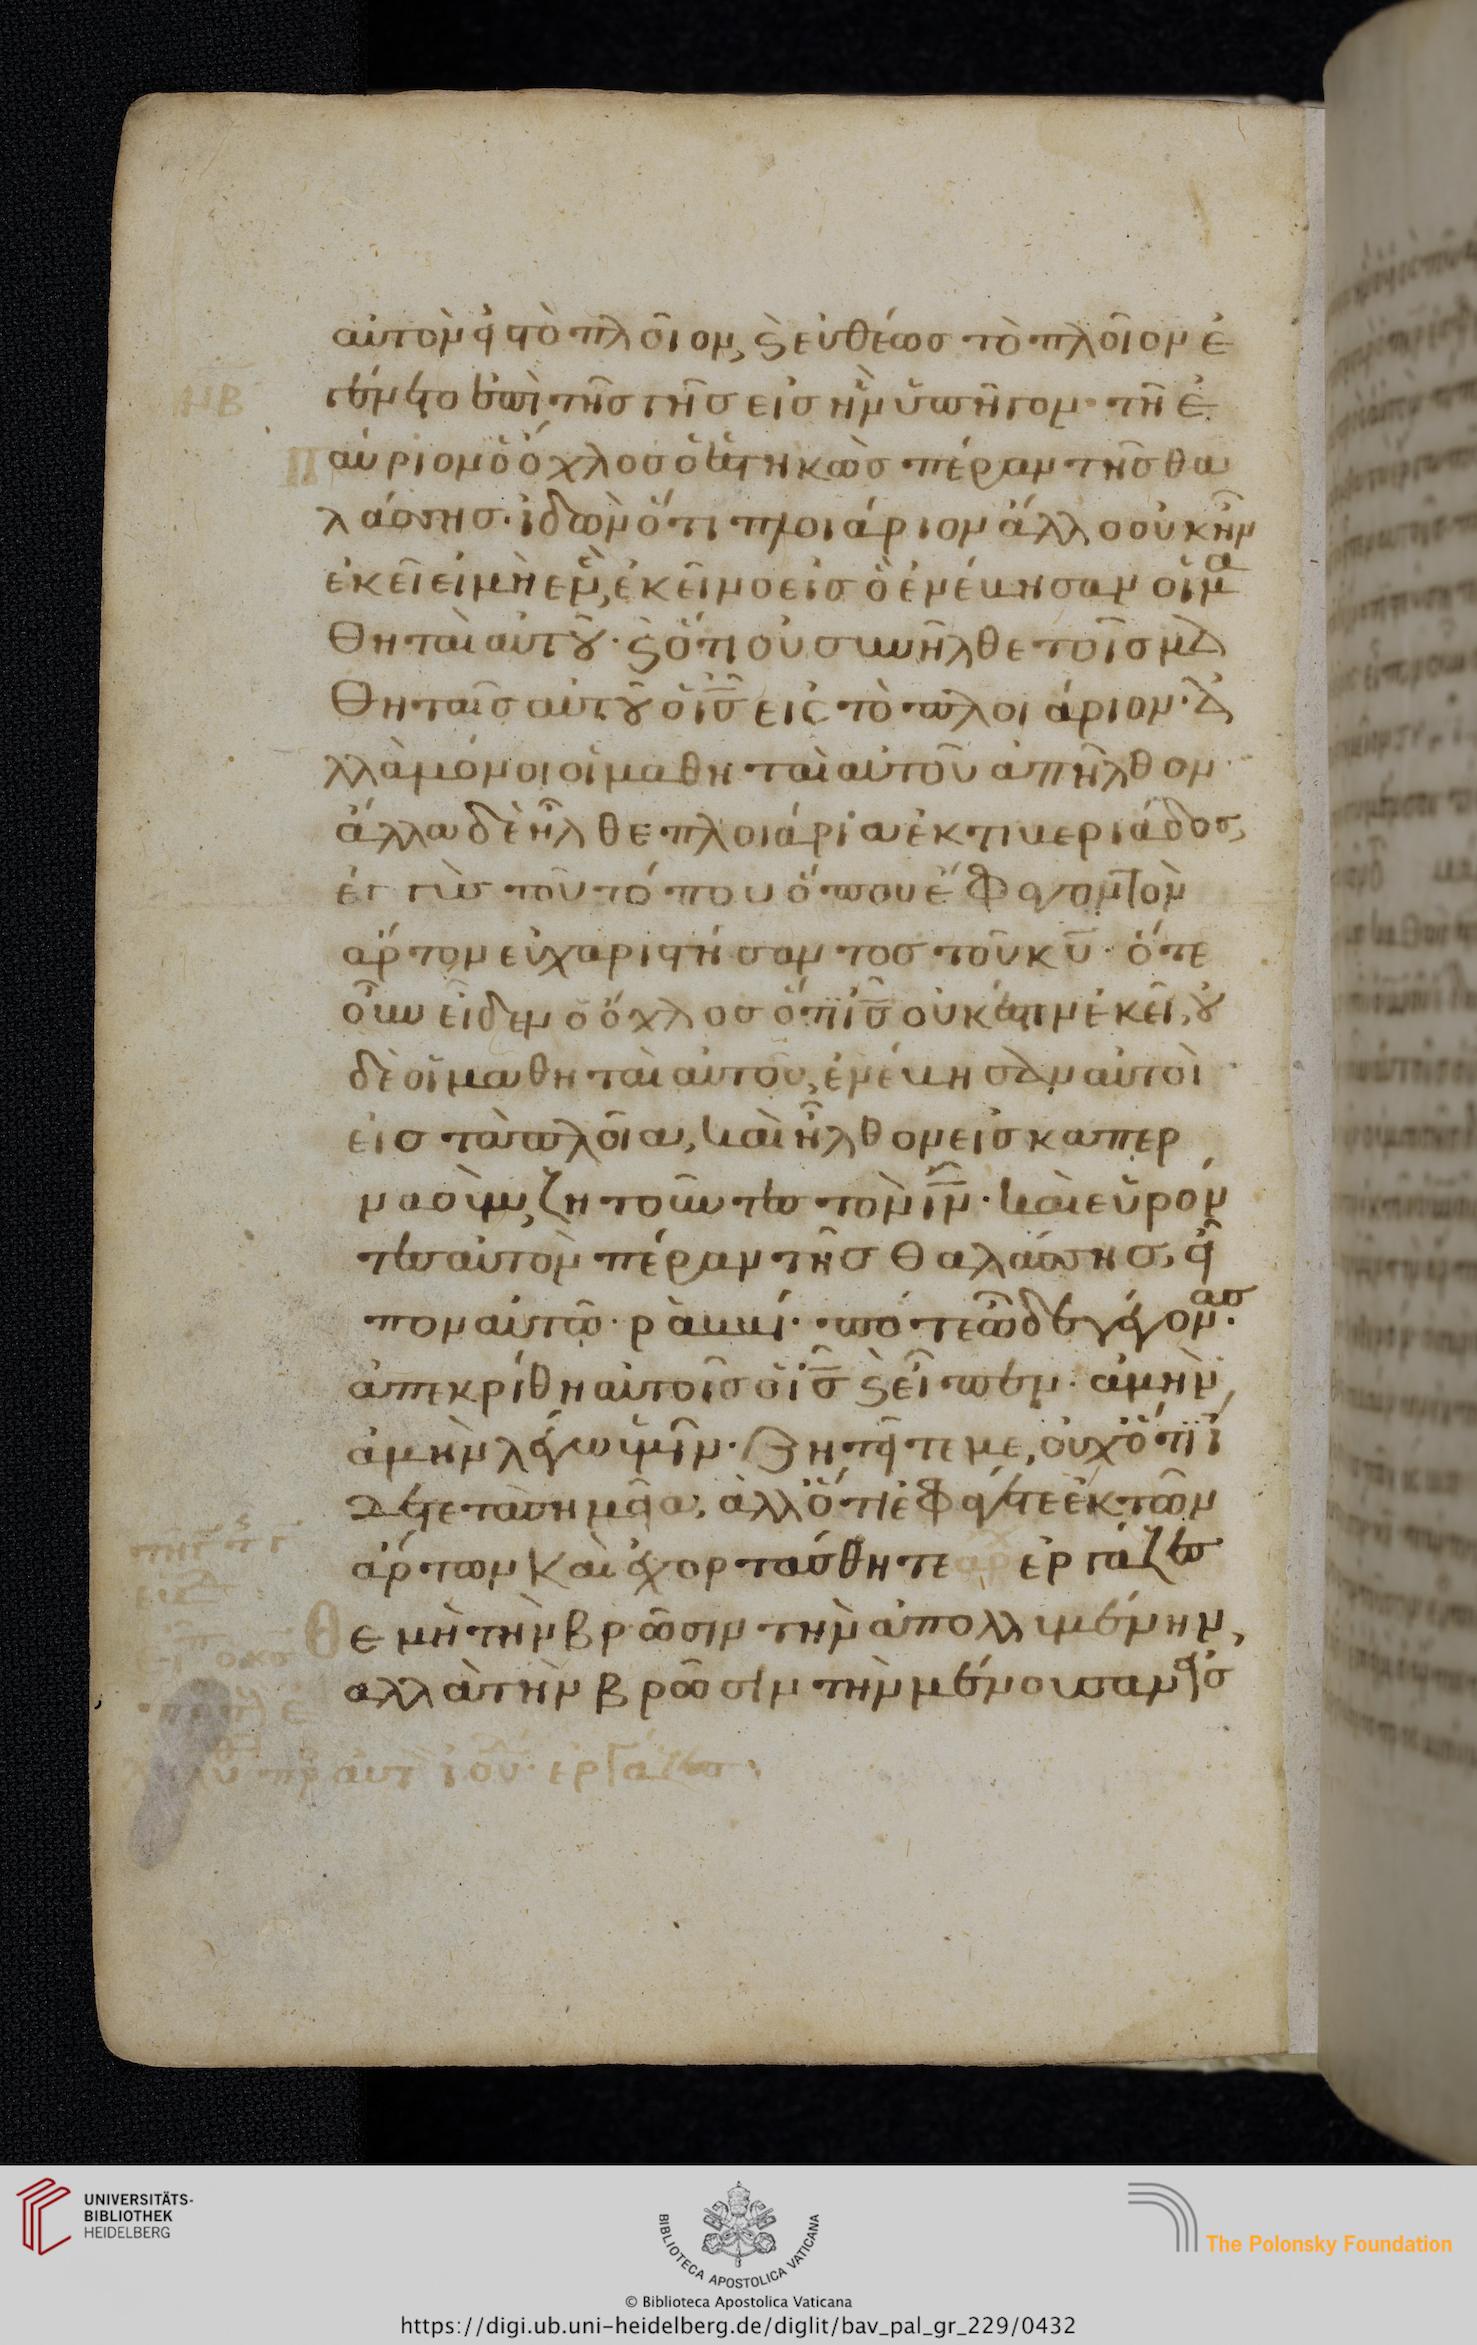 αὐτὸν εἰς τὸ πλοῖον, ϗ εὐθέως τὸ πλοῖον ἐ
μβ
γένετο ἐπὶ τῆς γῆς εἰς ἣν ὑπῆγον· τῆ ἐ
παύριον ὁ ὄχλος ὁ ἑστηκὼς πέραν τῆς θα
λάσσης· ἰδὼν ὅτι πλοιάριον ἄλλο οὐκ ἦν
ἐκεῖ εἰ μὴ ἓν, ἐκεῖνο εἰς ὃ ἐνέβησαν οἱ μα
θηταὶ αὐτοῦ· ϗ ὅτι οὐ συνῆλθε τοῖς μα
θηταῖς αὐτοῦ ὁ ις εἰς τὸ πλοιάριον· ἀ
λλὰ μόνοι οἱ μαθηταὶ αὐτοῦ ἀπῆλθον·
ἄλλα δὲ ἦλθε πλοιάρια ἐκ τιβεριάδος,
ἐγγὺς τοῦ τόπου ὅπου ἔφαγον τὸν
ἄρτον εὐχαριστήσαντος τοῦ κυ· ὅτε
οὖν εἶδεν ὁ ὄχλος ὅτι ις οὐκ ἔστιν ἐκεῖ, οὐ
δὲ οἱ μαθηταὶ αὐτοῦ, ἐνέβησαν αὐτοὶ
εἰς τὰ πλοῖα, καὶ ἦλθον εἰς καπερ
ναοὺμ, ζητοῦντες τὸν ιν· καὶ εὑρόν
τες αὐτὸν πέραν τῆς θαλάσσης, εἶ
πον αὐτῶ· ῥαββί· πότε ὧδε γέγονας·
ἀπεκρίθη αὐτοῖς ὁ ις ϗ εἶπεν· ἀμὴν
ἀμὴν λέγω ὑμῖν· ζητεῖτέ με, οὐχ ὅτι εἴ
δετε σημεῖα, ἀλλ' ὅτι ἐφάγετε ἐκ τῶν
ἄρτων καὶ ἐχορτάσθητε αρχ ἐργάζεσ
θε μὴ τὴν βρῶσιν τὴν ἀπολλυμένην,
αλλὰ τὴν βρῶσιν τὴν μένουσαν εἰς
UNIVERSITÄTS-
BIBLIOTHEK
HEIDELBERG
BIBLIOTECA APOSTOLICA VATICANA
The Polonsky Foundation
© Biblioteca Apostolica Vaticana
https://digi.ub.uni-heidelberg.de/diglit/bav_pal_gr_229/0432